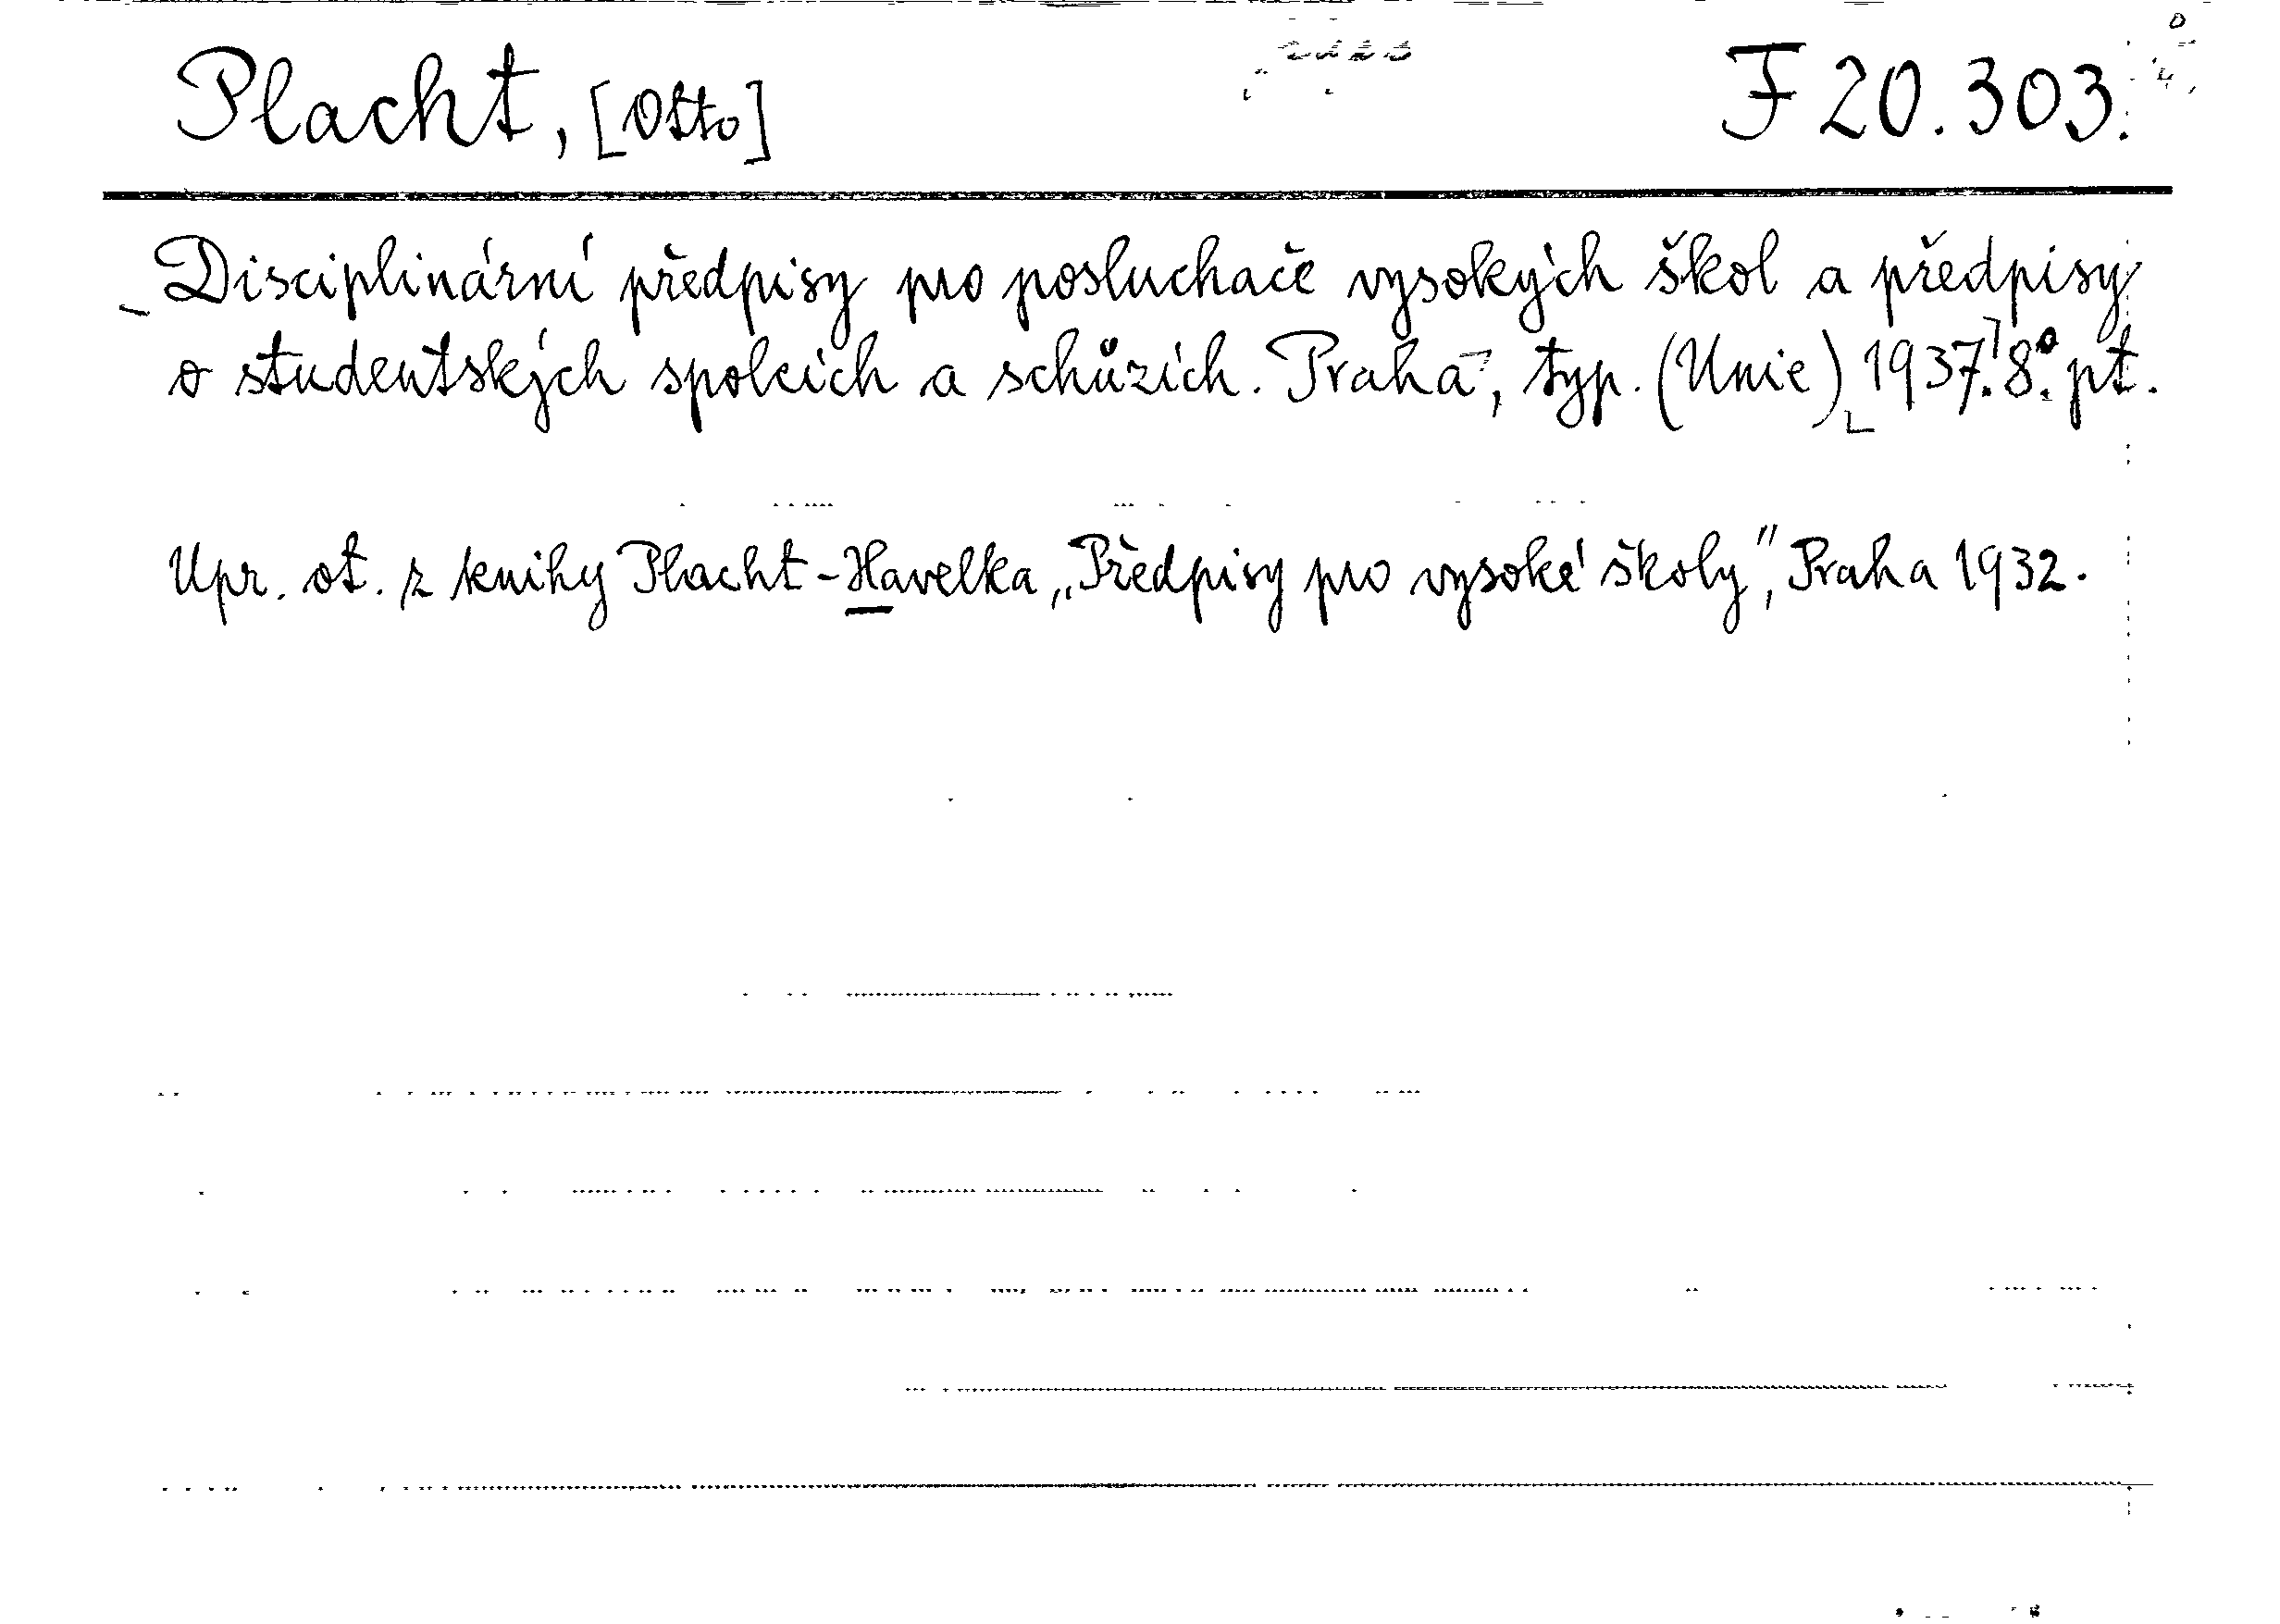 Placht, [Otto] F 20.303.
Disciplinární předpisy pro posluchače vysokých škol a předpisy
o studentských spolcích a schůzích. Praha, typ. (Unie) 1937. 8°. pt.
Upr. ot. z knihy Placht-Havelka „Předpisy pro vysoké školy", Praha 1932.